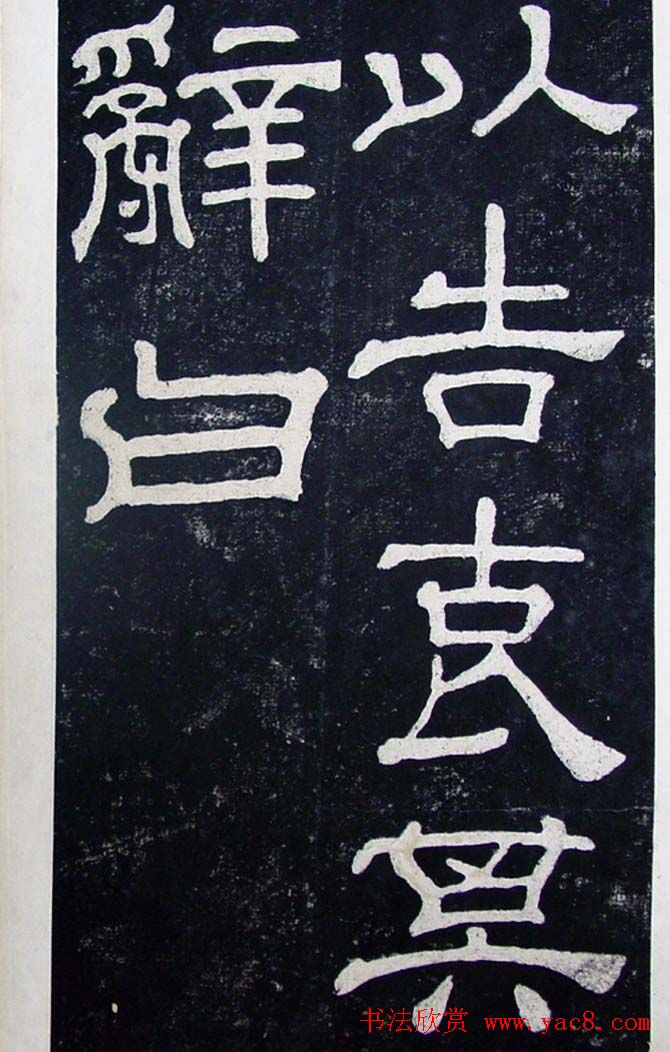 以告哀其
辭曰
书法欣赏 www.yac8.com